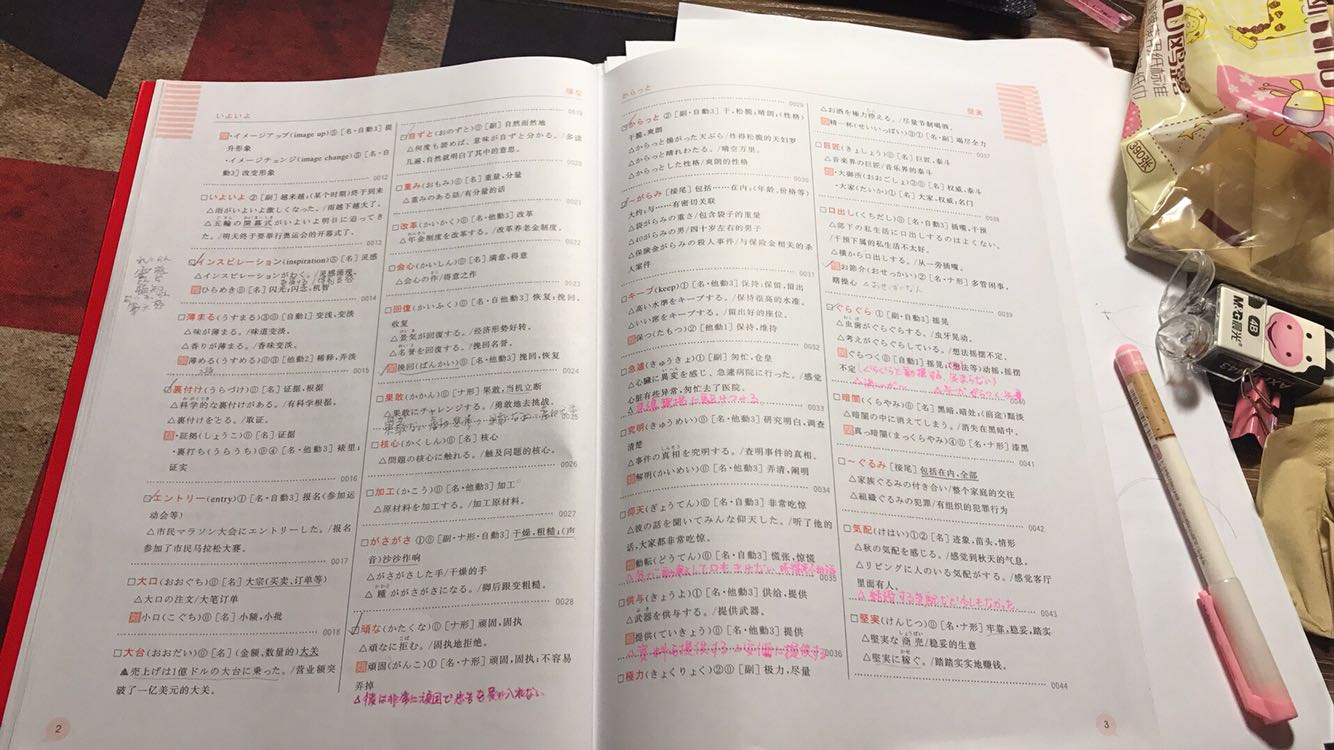 いよいよ
頑な
·イメージアップ(image up)⑤[名·自動3]提
升形象
·イメージチェンジ(image change)⑤[名·自
動3]改变形象
0012
□いよいよ ②[副]越来越;(某个时期)终于到来
△雨がいよいよ激しくなった。/雨越下越大了。
△五輪の開幕式がいよいよ明日に迫ってき
た。/明天终于要举行奥运会的开幕式了。
0013
□インスピレーション(inspiration)⑤[名]灵感
△インスピレーションがわく。/灵感涌现。
ひらめき⓪[名]闪光;闪念,机智
0014
□薄まる(うすまる)③⓪[自動1]变浅,变淡
△味が薄まる。/味道变淡。
△香りが薄まる。/香味变淡。
薄める(うすめる)⓪③[他動2]稀释,弄淡
0015
□裏付け(うらづけ)⓪[名]证据,根据
△科学的な裏付けがある。/有科学根据。
△裏付けをとる。/取证。
·証拠(しょうこ)⓪[名]证据
·裏打ち(うらうち)⓪④[名·他動3]裱里;
证实
0016
□エントリー(entry)①[名·自動3]报名(参加运
动会等)
△市民マラソン大会にエントリーした。/报名
参加了市民马拉松大赛。
0017
□大口(おおぐち)⓪[名]大宗(买卖、订单等)
△大口の注文/大笔订单
小口(こぐち)⓪[名]小额,小批
0018
□大台(おおだい)⓪[名](金额、数量的)大关
▲売上げは1億ドルの大台に乗った。/营业额突
破了一亿美元的大关。
2
0019
□自ずと(おのずと)⓪[副]自然而然地
△何度も読めば、意味が自ずと分かる。/多读
几遍,自然就明白了其中的意思。
0020
□重み(おもみ)⓪[名]重量,分量
△重みのある話/有分量的话
0021
□改革(かいかく)⓪[名·他動3]改革
△年金制度を改革する。/改革养老金制度。
0022
□会心(かいしん)⓪[名]满意,得意
△会心の作/得意之作
0023
□回復(かいふく)⓪[名·自他動3]恢复;挽回,
收复
△景気が回復する。/经济形势好转。
△名誉を回復する。/挽回名誉。
挽回(ばんかい)⓪[名·他動3]挽回,恢复
0024
□果敢(かかん)⓪[ナ形]果敢,当机立断
△果敢にチャレンジする。/勇敢地去挑战。
0025
□核心(かくしん)⓪[名]核心
△問題の核心に触れる。/触及问题的核心。
0026
□加工(かこう)⓪[名·他動3]加工
△原材料を加工する。/加工原材料。
0027
□がさがさ ①⓪[副·ナ形·自動3]干燥,粗糙;(声
音)沙沙作响
△がさがさした手/干燥的手
△踵ががさがさになる。/脚后跟变粗糙。
0028
□頑な(かたくな)⓪[ナ形]顽固,固执
△頑なに拒む。/固执地拒绝。
頑固(がんこ)①[名·ナ形]顽固,固执;不容易
弄掉
からっと
堅実
0029
□からっと ②[副·自動3]干,松脆;晴朗;(性格)
干脆,爽朗
△からっと揚がった天ぷら/炸得松脆的天妇罗
△からっと晴れわたる。/晴空万里。
△からっとした性格/爽朗的性格
0030
□~がらみ[接尾]包括……在内;(年龄、价格等)
大约;与……有密切关联
△袋がらみの重さ/包含袋子的重量
△40がらみの男/四十岁左右的男子
△保険金がらみの殺人事件/与保险金相关的杀
人案件
0031
□キープ(keep)①[名·他動3]保持;保留,留出
△高い水準をキープする。/保持很高的水准。
△いい席をキープする。/留出好的座位。
保つ(たもつ)②[他動1]保持,维持
0032
□急遽(きゅうきょ)①[副]匆忙,仓皇
△心臓に異変を感じ、急遽病院に行った。/感觉
心脏有些异常,匆忙去了医院。
0033
□究明(きゅうめい)⓪[名·他動3]研究明白,调查
清楚
△事件の真相を究明する。/查明事件的真相。
解明(かいめい)⓪[名·他動3]弄清,阐明
0034
□仰天(ぎょうてん)⓪[名·自動3]非常吃惊
△彼の話を聞いてみんな仰天した。/听了他的
话,大家都非常吃惊。
動転(どうてん)⓪[名·自動3]慌张,惊慌
0035
□供与(きょうよ)①[名·他動3]供给,提供
△武器を供与する。/提供武器。
提供(ていきょう)⓪[名·他動3]提供
0036
□極力(きょくりょく)②⓪[副]极力,尽量
△お酒を極力控える。/尽量节制喝酒。
精一杯(せいいっぱい)③①[名·副]竭尽全力
0037
□巨匠(きょしょう)⓪[名]巨匠,泰斗
△音楽界の巨匠/音乐界的泰斗
·大御所(おおごしょ)③⓪[名]权威,泰斗
·大家(たいか)①[名]大家,权威;名门
0038
□口出し(くちだし)⓪[名·自動3]插嘴,干预
△部下の私生活に口出しするのはよくない。
/干预下属的私生活不太好。
△横から口出しする。/从一旁插嘴。
お節介(おせっかい)②[名·ナ形]多管闲事,
瞎操心
0039
□ぐらぐら ①[副·自動3]摇晃
△虫歯がぐらぐらする。/虫牙晃动。
△考えがぐらぐらしている。/想法摇摆不定。
ぐらつく⓪[自動1]摇晃;(想法等)动摇,摇摆
不定
0040
□暗闇(くらやみ)⓪[名]黑暗,暗处;(前途)黯淡
△暗闇の中に消えてしまう。/消失在黑暗中。
真っ暗闇(まっくらやみ)④⓪[名·ナ形]漆黑
0041
□~ぐるみ[接尾]包括在内,全部
△家族ぐるみの付き合い/整个家庭的交往
△組織ぐるみの犯罪/有组织的犯罪行为
0042
□気配(けはい)①②[名]迹象,苗头,情形
△秋の気配を感じる。/感觉到秋天的气息。
△リビングに人のいる気配がする。/感觉客厅
里面有人。
0043
□堅実(けんじつ)⓪[名·ナ形]牢靠,稳妥,踏实
△堅実な商売/稳妥的生意
△堅実に稼ぐ。/踏踏实实地赚钱。
0044
3
M&G晨光
4B
390张